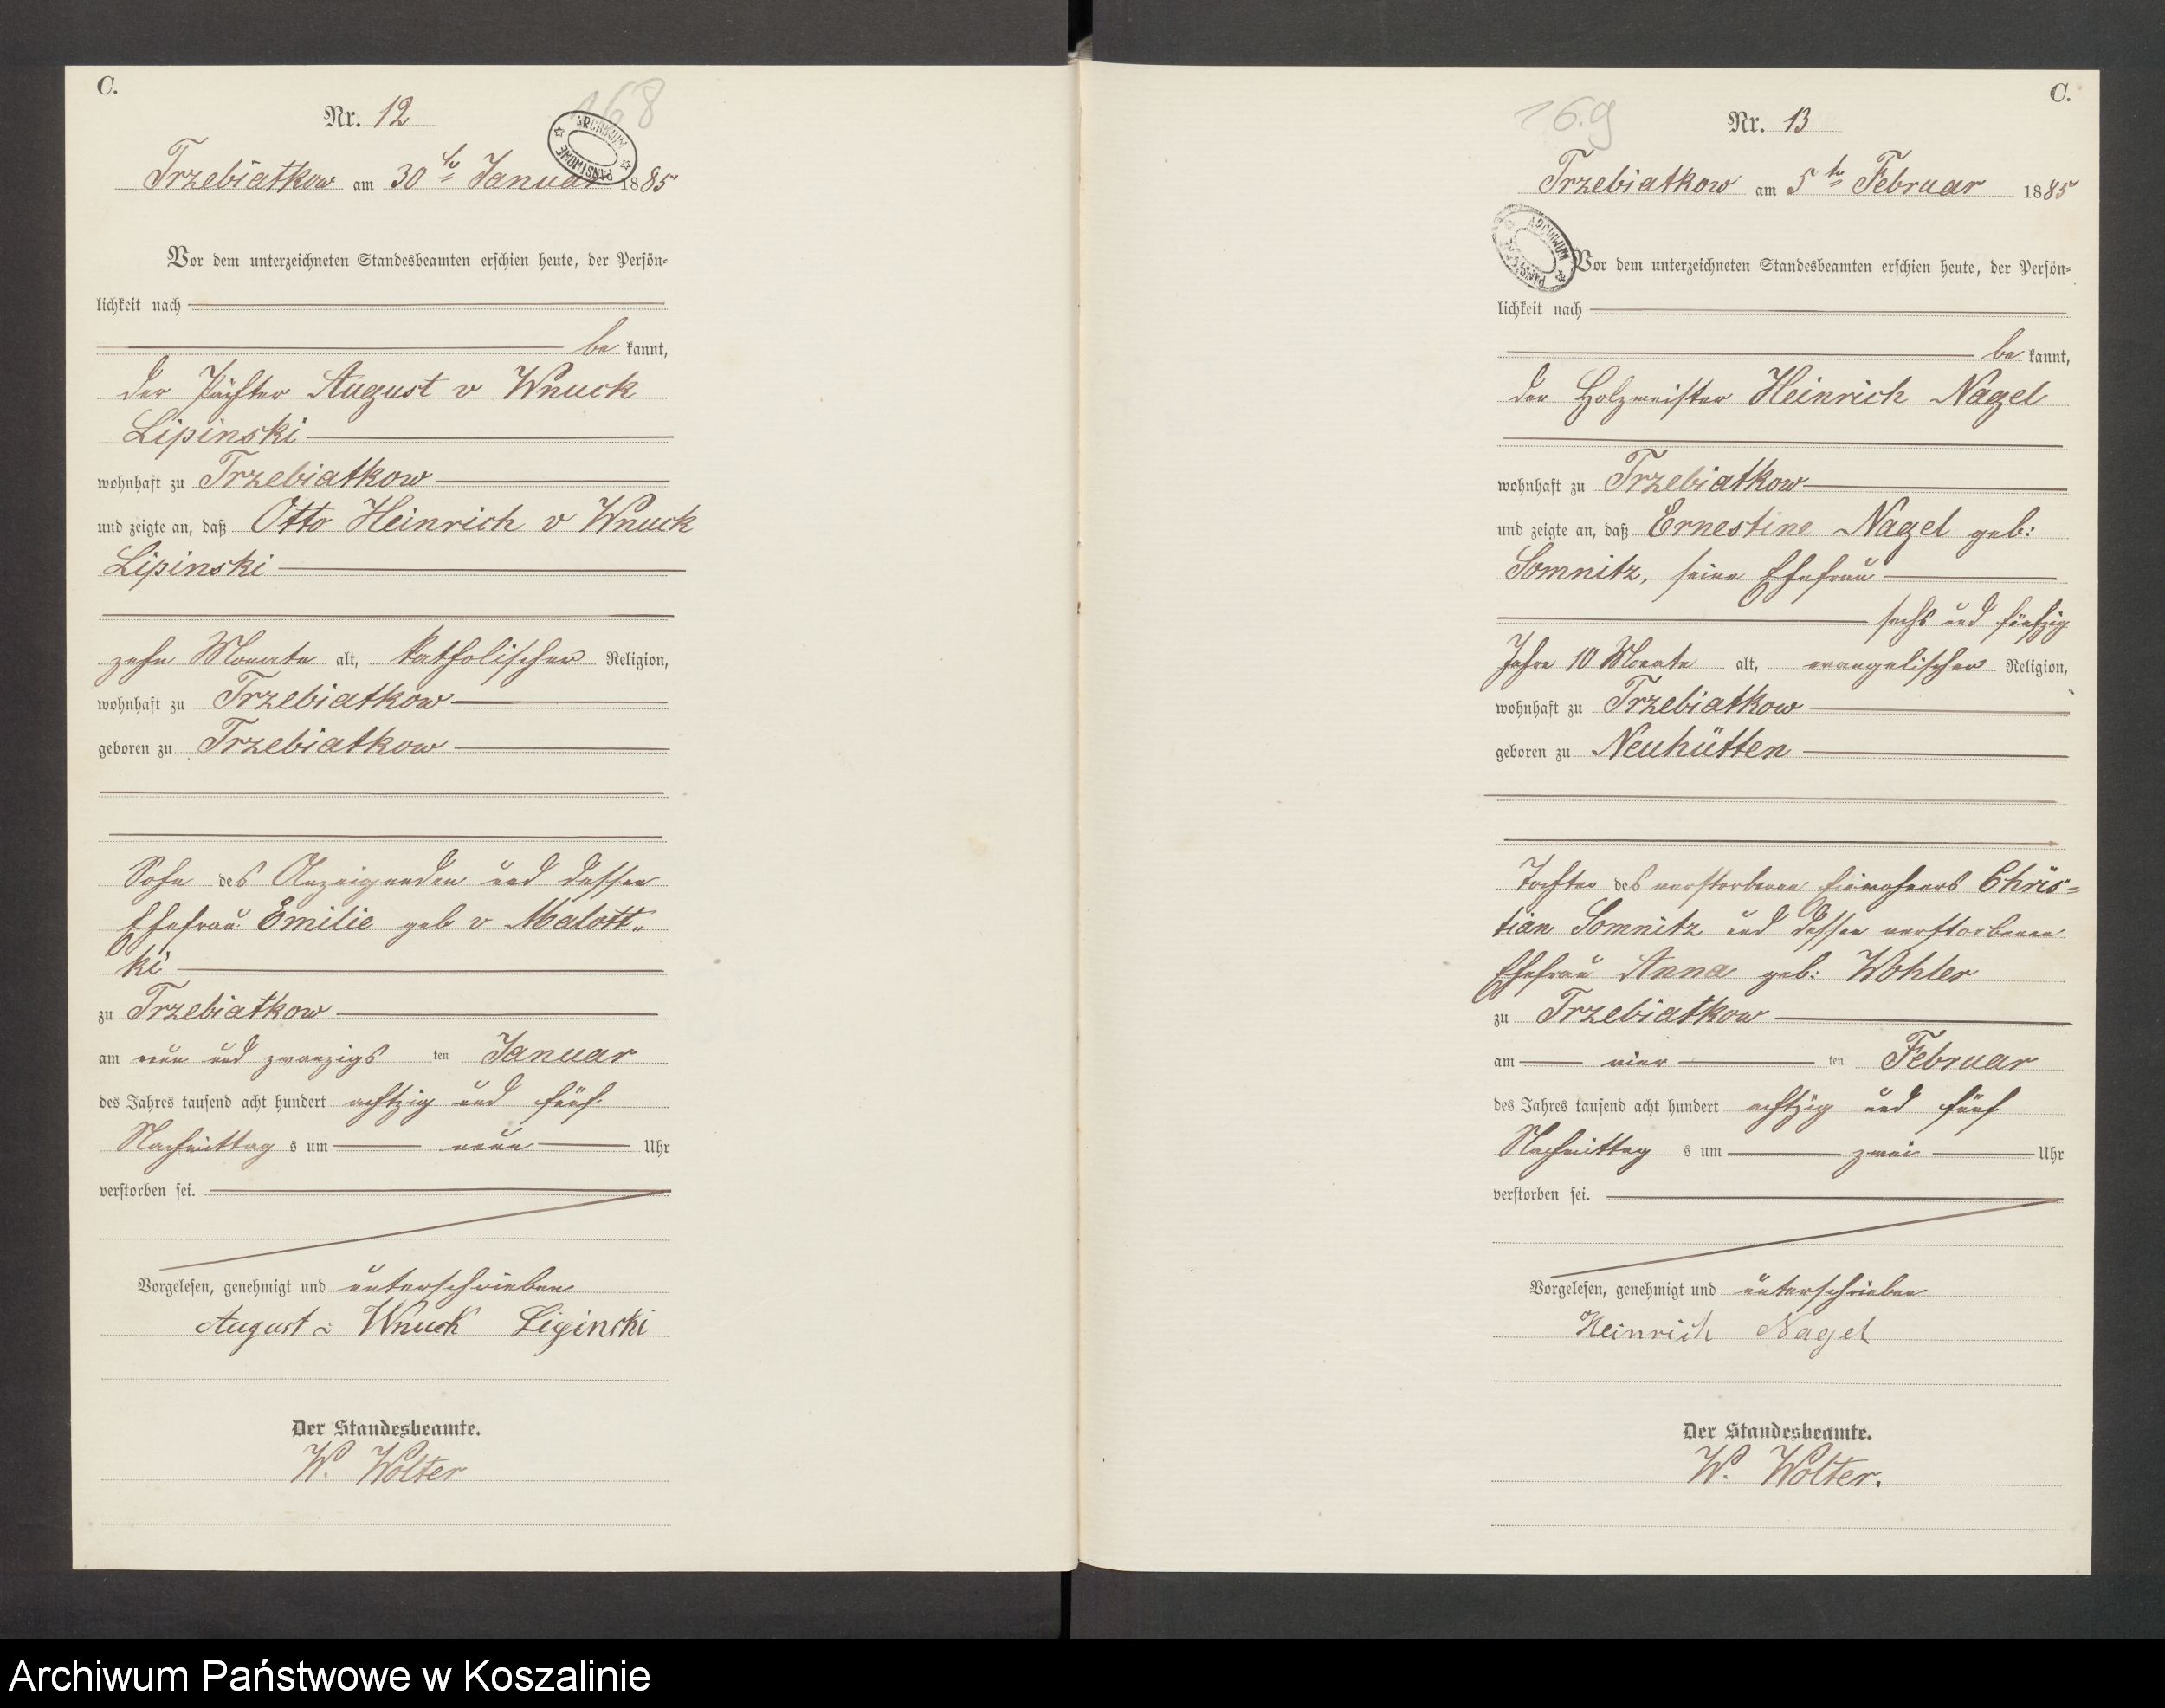 C.
168
Nr. 12
ARCHIWUM PAŃSTWOWE
Trzebiatkow am 30ten Januar 1885
Vor dem unterzeichneten Standesbeamten erschien heute, der Persön-
lichkeit nach
bekannt,
der Pächter August v Wnuck
Lipinski
wohnhaft zu Trzebiatkow
und zeigte an, daß Otto Heinrich v Wnuck
Lipinski
zehn Monate alt, katholischer Religion,
wohnhaft zu Trzebiatkow
geboren zu Trzebiatkow
Sohn des Anzeigenden und dessen
Ehefrau Emilie geb v Malott-
ki
zu Trzebiatkow
am neun und zwanzigsten Januar
des Jahres tausend acht hundert achtzig und fünf
Nachmittags um neun Uhr
verstorben sei.
Vorgelesen, genehmigt und unterschrieben
August v Wnuck Lipinski
Der Standesbeamte.
W. Wolter
C.
169
Nr. 13
Trzebiatkow am 5ten Februar 1885
ARCHIWUM PAŃSTWOWE
Vor dem unterzeichneten Standesbeamten erschien heute, der Persön-
lichkeit nach
bekannt,
der Holzmeister Heinrich Nagel
wohnhaft zu Trzebiatkow
und zeigte an, daß Ernestine Nagel geb:
Somnitz, seine Ehefrau
sechs und fünfzig
Jahre 10 Monate alt, evangelischer Religion,
wohnhaft zu Trzebiatkow
geboren zu Neuhütten
Tochter des verstorbenen Einwohners Chris-
tian Somnitz und dessen verstorbenen
Ehefrau Anna geb: Wohler
zu Trzebiatkow
am vierten Februar
des Jahres tausend acht hundert achtzig und fünf
Nachmittags um zwei Uhr
verstorben sei.
Vorgelesen, genehmigt und unterschrieben
Heinrich Nagel
Der Standesbeamte.
W. Wolter.
Archiwum Państwowe w Koszalinie